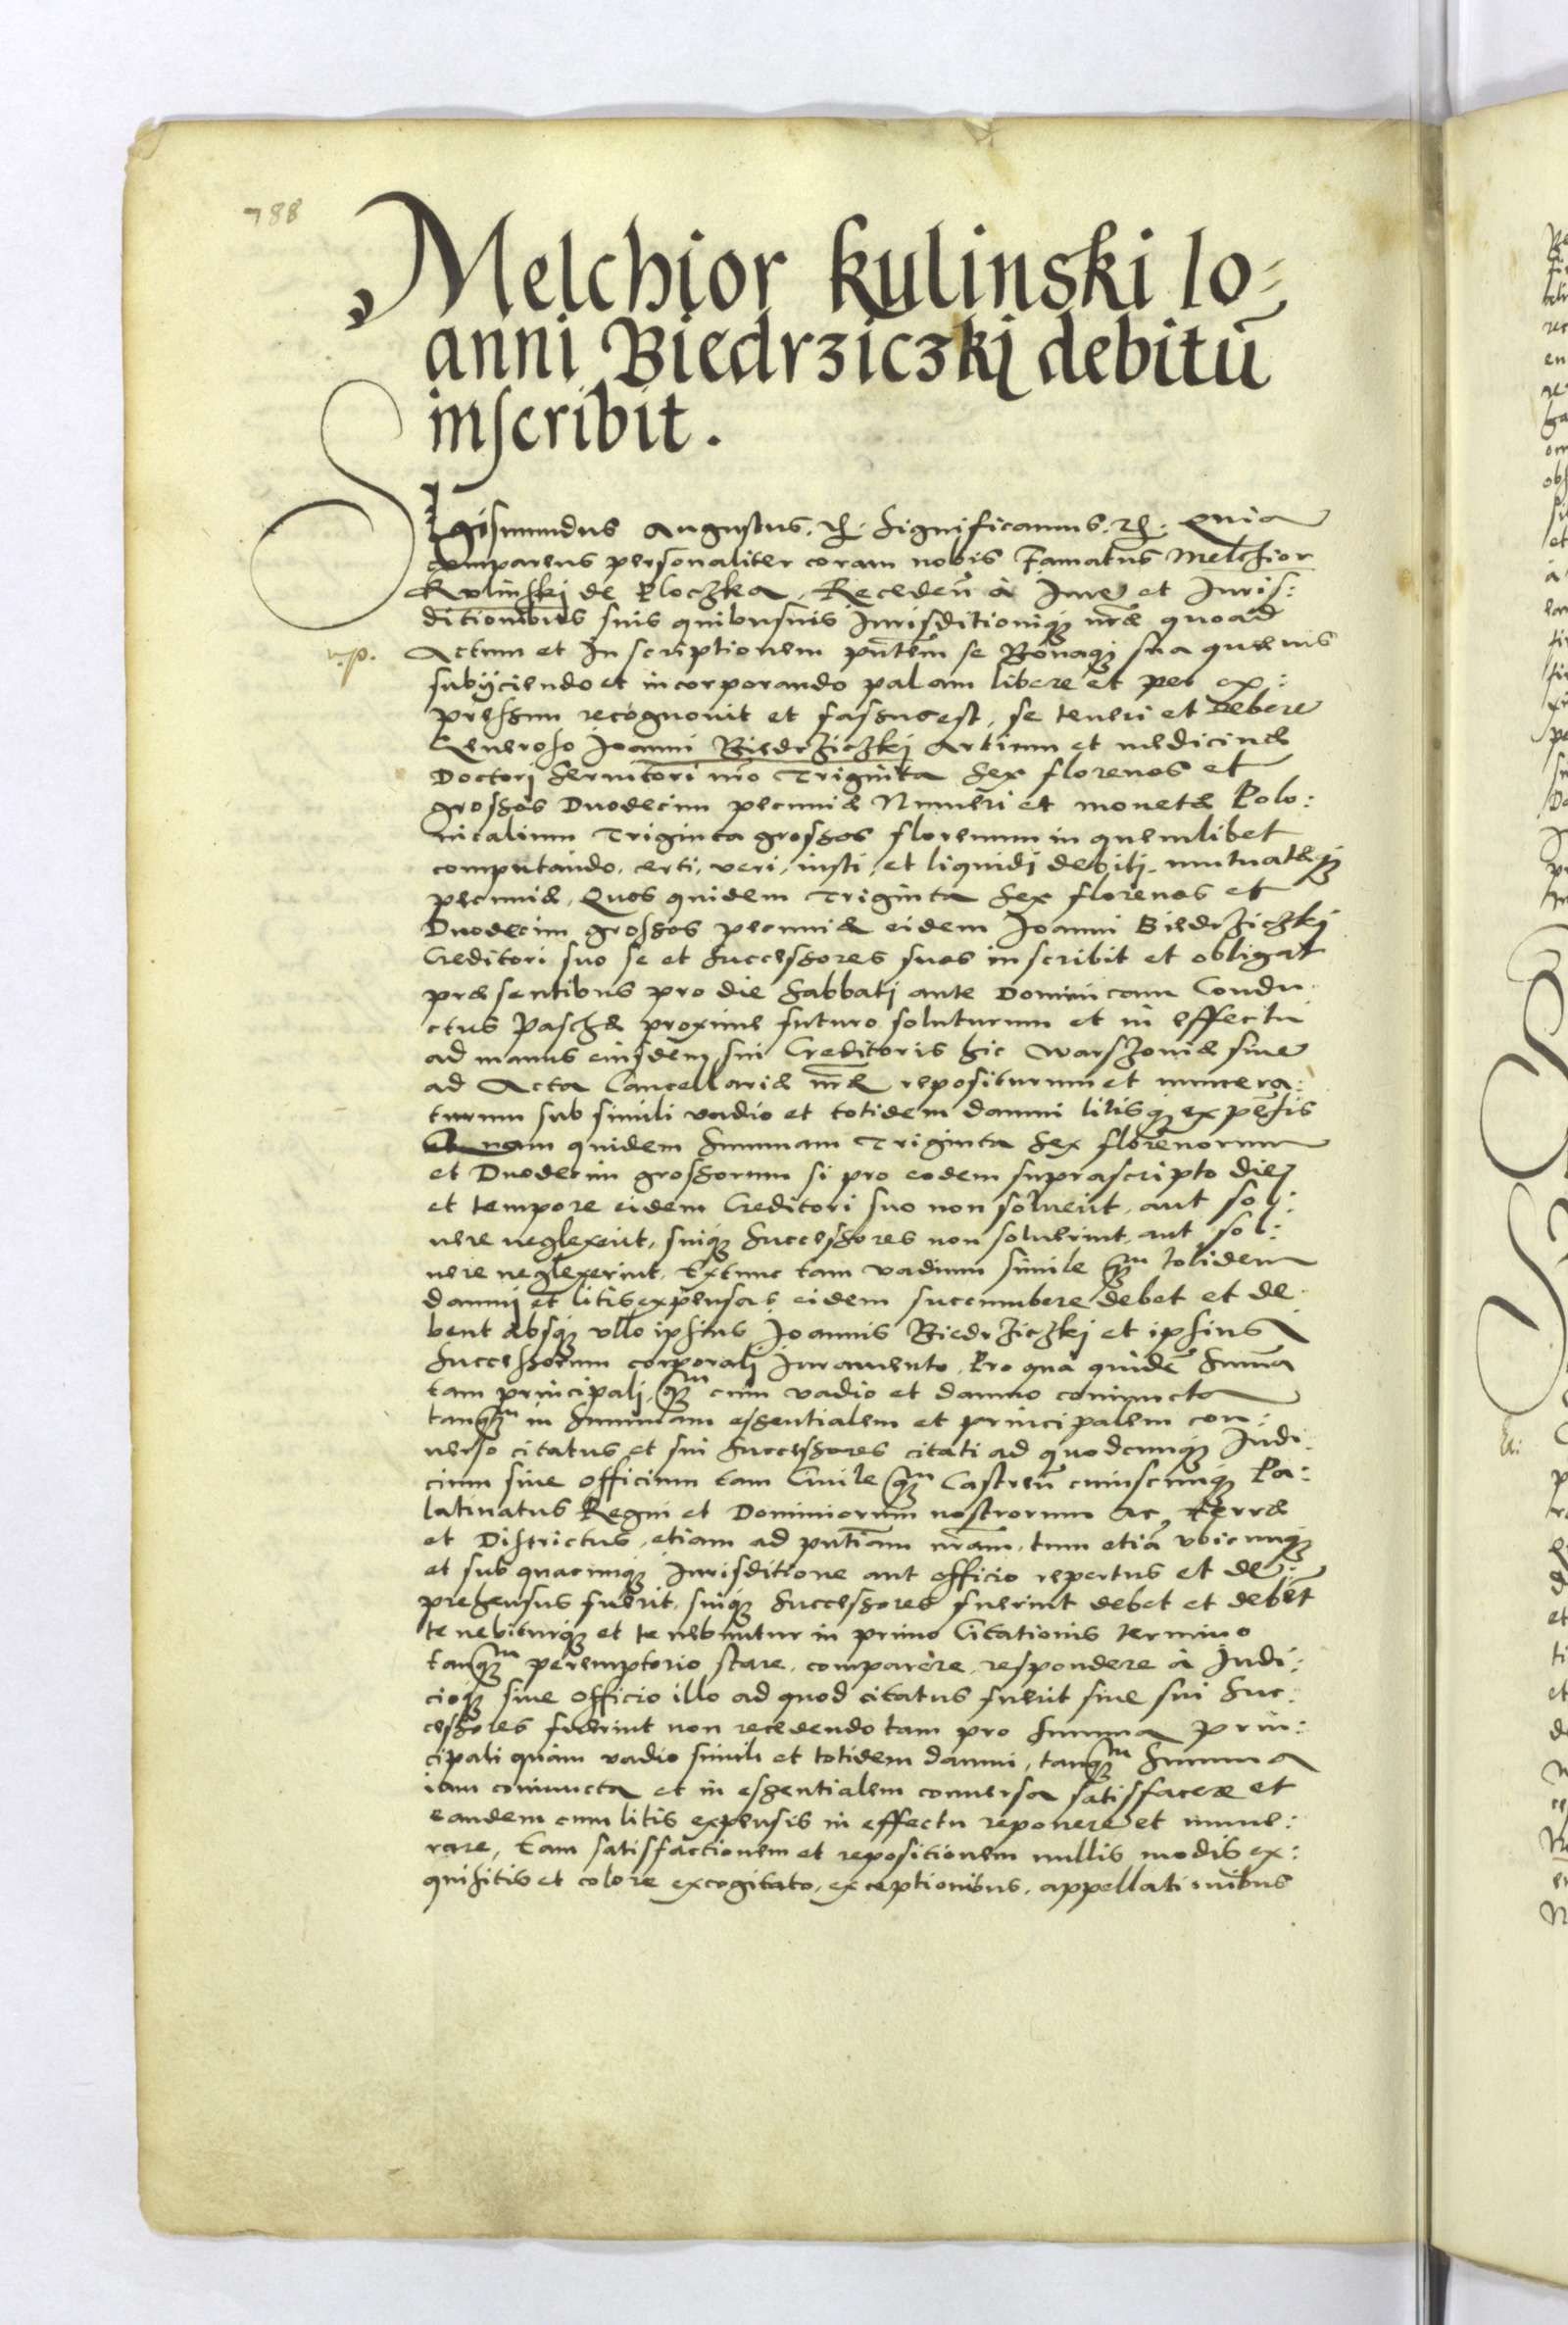 788
Melchior Kulinski Io=
anni Biedrziczki debitū
inscribit.
Sigismundus Augustus. etc. Significamus. etc. Quia
comparens personaliter coram nobis Famatus Melchior
Kulinski de Ploczka, Receden̄ à Jure et Juris:
ditionibus suis quibusuis Jurisditioniq; nr̄æ quoad
Actum et Inscriptionem pn̄tem se Bonaq; sua quæuis
subijciendo et incorporando palam libere et per ex:
pressum recognouit et fassus est, se teneri et debere
Generoso Joanni Biedrziczki Artium et medicinæ
Doctori Seruitori nr̄o Triginta Sex florenos et
grossos Duodecim pecuniæ Numeri et monetæ Polo:
nicalium Triginta grossos florenum in quemlibet
computando, certi, veri, iusti, et liquidi debiti, mutuatæq;
pecuniæ, Quos quidem Triginta Sex florenos et
Duodecim grossos pecuniæ eidem Joanni Biedrziczki
Creditori suo se et Successores suos inscribit et obligat
præsentibus pro die Sabbati ante Dominicam Condu
ctus Paschæ proxime futuro soluturum et in effectu
ad manus eiusdem sui Creditoris hic Warszouiæ siue
ad Acta Cancellariæ nr̄æ repositurum et numera:
turum sub simili vadio et totidem damni litisq; expēsis
Quam quidem Summam Triginta Sex florenorum
et Duodecim grossorum si pro eodem suprascripto die
et tempore eidem Creditori suo non soluerit, aut sol:
uere neglexerit, suiq; Successores non soluerint, aut sol:
uere neglexerint, Extunc tam vadium simile q̄m totidem
damni et litis expensas eidem succumbere debet et de
bent absq; vllo ipsius Joannis Biedrziczki et ipsius
Successorum corporali Juramento. Pro qua quidē Summa
tam principali, q̄m cum vadio et damno coniuncta
tanq̄m in Summam essentialem et principalem con:
uerso citatus et sui Successores citati ad quodcunq; Judi
cium siue officium tam Ciuile q̄m Castren̄ cuiuscunq; Pa:
latinatus Regni et Dominiorum nostrorum ac terræ
et Districtus, etiam ad pn̄tiam nr̄am, tum etiā vbicunq;
et sub quacunq; Jurisditione aut officio repertus et de:
prehensus fuerit, suiq; Successores fuerint debet et debēt
tenebiturq; et tenebuntur in primo Citationis termino
tanq̄m peremptorio stare, comparere, respondere à Judi:
cioq; siue officio illo ad quod citatus fuerit siue sui Suc:
cessores fuerint non recedendo tam pro Summa prin:
cipali quàm vadio simili et totidem damni, tanq̄m Summa
iam coniuncta et in essentialem conuersa satisfacere et
eandem cum litis expensis in effectu reponere et nume:
rare, Eam satisfactionem et repositionem nullis modis ex:
quisitis et colore excogitato, exceptionibus, appellationibus